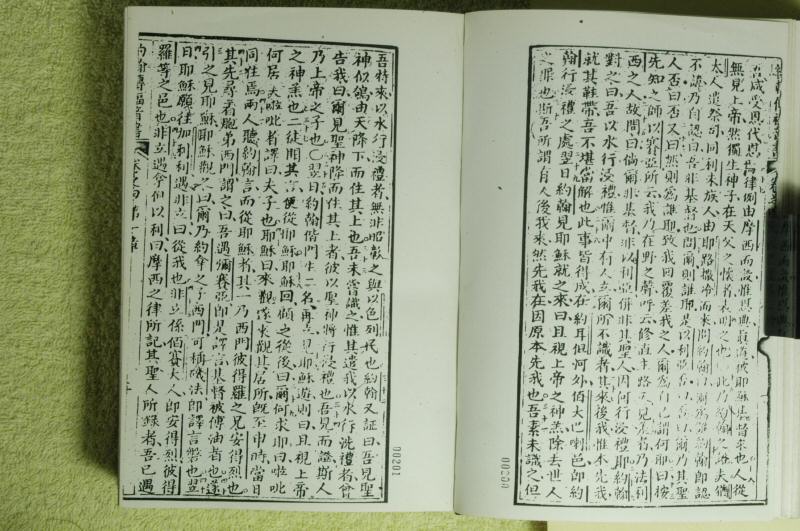 吾咸受恩代恩焉律例由摩西而設惟恩典眞道被耶穌基督來也人從
無見上帝然獨生神子在天父之懷者表明之也
太人遣祭司同利未族人由耶路撒冷而來問約翰曰爾爲誰約翰即認
不諱乃自認曰吾非基督也問爾則誰耶是以利亞否曰否曰爾乃其聖
人否曰否又曰無則爲誰耶致我回覆差我之人爾爲自己謂何耶曰按
先知之師以賽亞所云我乃在野之聲呼云修直主路
西之人故問曰倘爾非基督非以利亞併非其聖人因何行浸禮耶約翰
對之曰吾以水行浸禮惟爾中有人立爾所不識者其來後我惟本先我
就其鞋帶吾不堪當解也此事皆得成在約耳但河外伯大巴喇邑即約
翰行浸禮之處翌日約翰見耶穌就之來曰且視上帝之神羔除去世人
之罪也斯吾所謂有人後我來然先我在因原本先我也吾素未識之但
00200
吾特來以水行浸禮者無非昭彰之與以色列民也約翰又証曰吾見聖
神似鴿由天降下而住其上也吾未嘗識之惟其遣我以水行洗禮者曾
告我曰爾見聖神降而住其上者彼以聖神將行浸禮也吾見而證斯人
乃上帝之子也〇翌日約翰偕門生二名再立見耶穌遊則曰且視上帝
之神羔也二徒聞其言便從耶穌耶穌回顧之從後曰爾何求耶曰啦吡
何居夫啦吡者譯曰夫子也耶穌曰來觀遂來觀其居所既至申時當日
同住焉兩人聽約翰言而從耶穌者其一乃西門彼得羅之兄安得烈也
其先尋着胞弟西門謂之曰吾遇彌賽亞即是譯言基督被傅油者也遂
引之見耶穌耶穌觀之曰爾乃約拿之子西門可稱磯法即譯言磐也翌
日耶穌願往加利利遇非立曰從我也非立係伯賽大人即安得烈彼得
羅等之邑也非立遇拿但以利曰摩西之律所記其聖人所錄者吾已遇
約翰傳福音書
第一章
00201